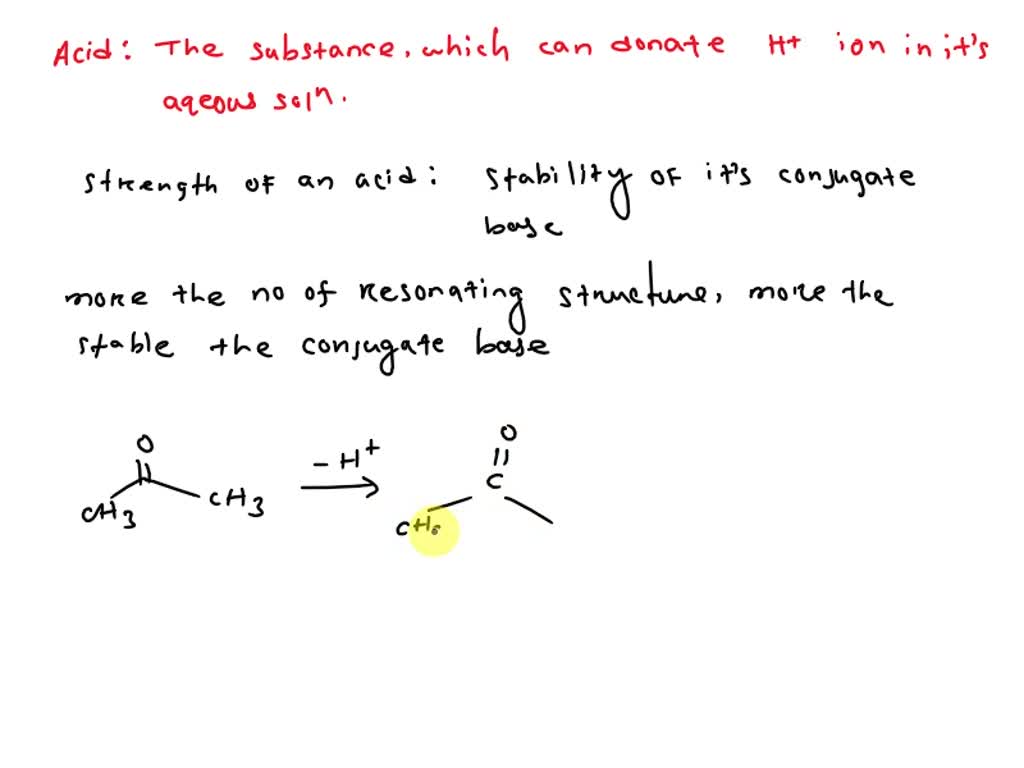 Acid: The substance, which can donate H+ ion in it's
aqeous solⁿ.
strength of an acid: stability of it's conjugate
base
more the no of resonating structure, more the
stable the conjugate base
O
CH3 CH3
- H+
O
C